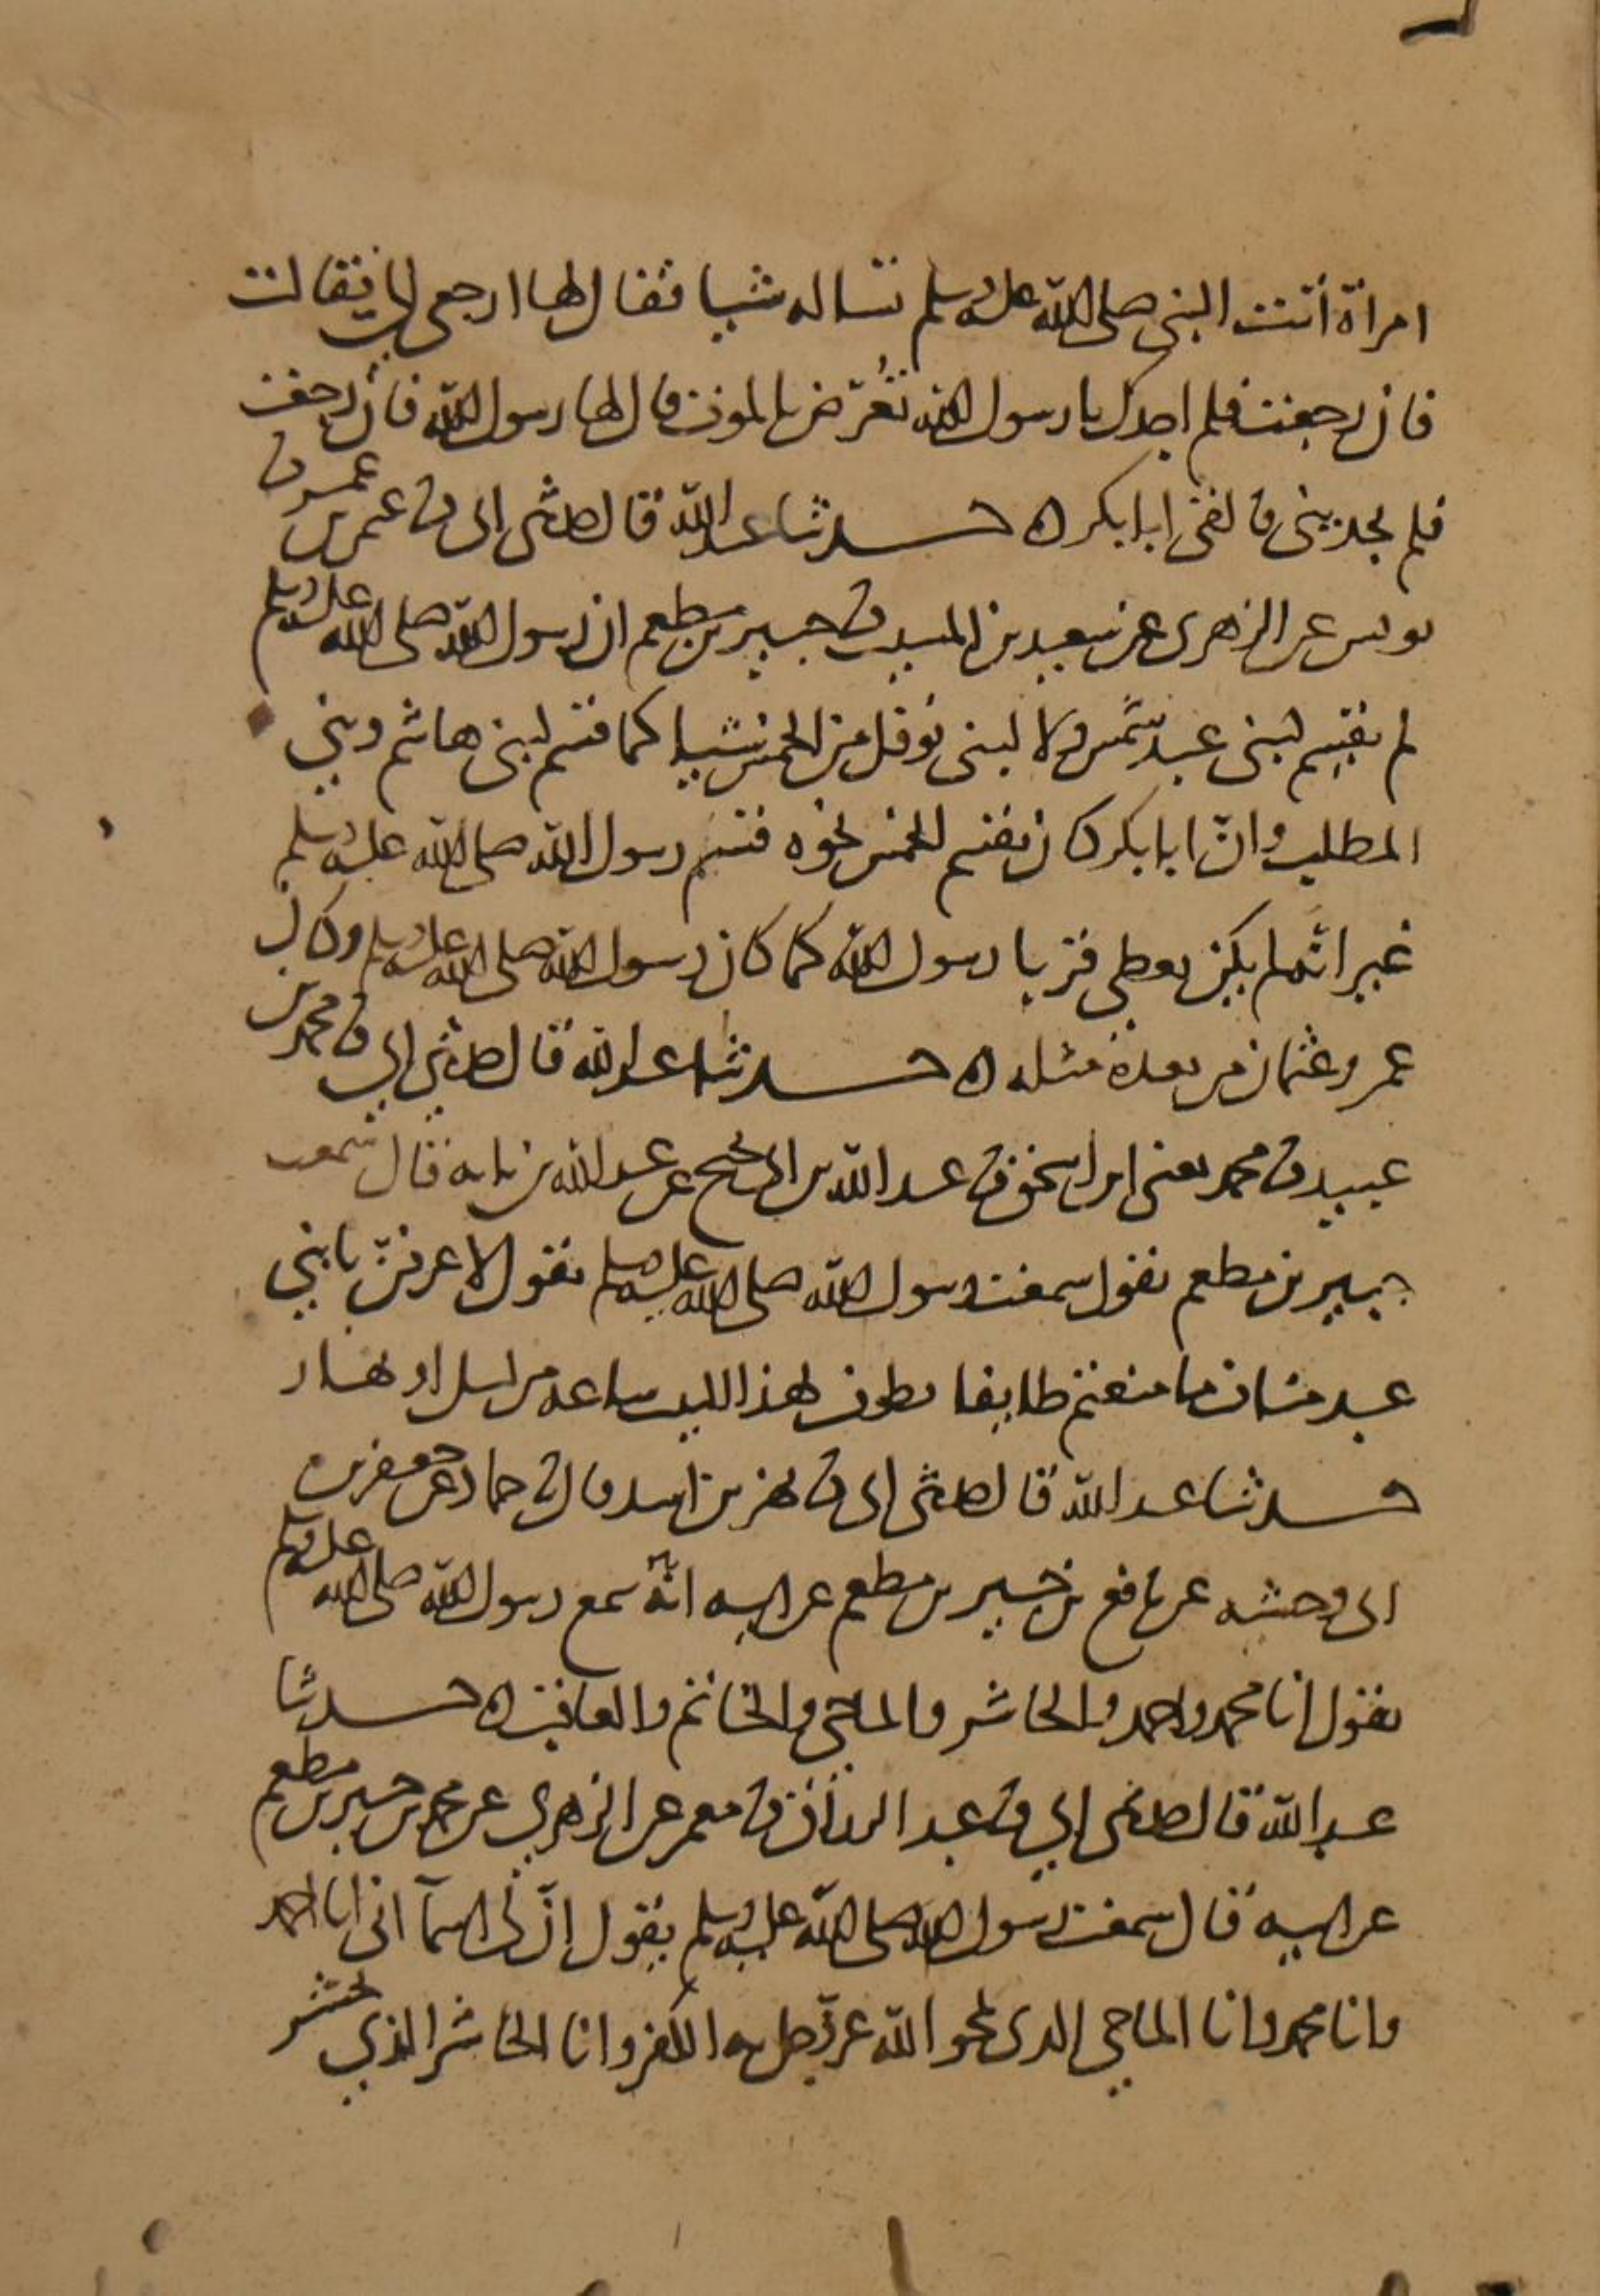 امراة أتت النبي صلى الله عليه وسلم تساله شيا فقال لها ارجعي الي فقالت
فان رجعت فلم اجدك يا رسول الله تُعَرّض بالموت قال لها رسول الله فان رجعت
فلم تجديني فالقى ابا بكر ه حدثنا عبد الله قال حدثني ابي ثنا عثمن بن عمر ثنا
يونس عن الزهري عن سعيد بن المسيب ثنا جبير بن مطعم ان رسول الله صلى الله عليه وسلم
لم يقسم لبني عبد شمس ولا لبني نوفل من الخمس شيا كما قسم لبني هاشم وبني
المطلب وانّ ابا بكر كان يقسم الخمس نحو قسم رسول الله صلى الله عليه وسلم
غير انه لم يكن يعطي قربا رسول الله كما كان رسول الله صلى الله عليه وسلم وكان
عمر وعثمان من بعده مثله ه حدثنا عبد الله قال حدثني ابي ثنا محمد بن
عبيد ثنا محمد يعني ابن اسحق ثنا عبد الله بن ابي نجيح عن عبد الله بن بابه قال سمعت
جبير بن مطعم يقول سمعت رسول الله صلى الله عليه وسلم يقول لاعرفنّ يا بني
عبد مناف ما منعتم طايفا يطوف بهذا البيت ساعة من ليل او نهار
حدثنا عبد الله قال حدثني ابي ثنا بهز بن اسد قال ثنا حماد عن جعفر بن
ابي وحشيه عن نافع بن جبير بن مطعم عن ابيه انّه سمع رسول الله صلى الله عليه وسلم
يقول انا محمد واحمد والحاشر والماحي والخاتم والعاقب ه حدثنا
عبد الله قال حدثني ابي ثنا عبد الرزاق ثنا معمر عن الزهري عن محمد بن جبير بن مطعم
عن ابيه قال سمعت رسول الله صلى الله عليه وسلم يقول إنّ لي اسمآ اني انا احمد
وانا محمد وانا الماحي الذي يمحو الله عز وجل به الكفر وانا الحاشر الذي يحشر